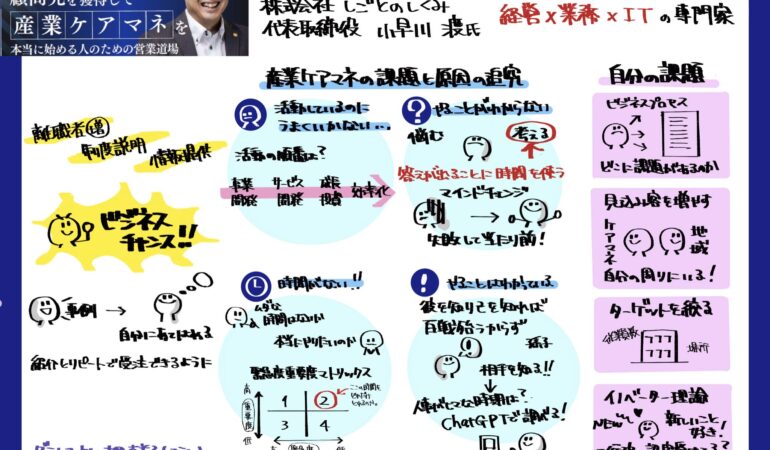 顧問先を獲得して
産業ケアマネを
本当に始める人のための営業道場
株式会社 しごとのしくみ
代表取締役 小早川 渡氏
経営×業務×ITの専門家
産業ケアマネの課題と原因の追究
自分の課題
離職者増
制度説明
情報提供
ビジネス
チャンス!!
事例
自分にあてはめる
紹介とリピートで受注できるように
活動しているのに
うまくいかない…
活動の順番は?
事業 サービス 成長 効率化
開発 開発 投資
やることがわからない
悩む 考える
答えが出ることに時間を使う
マインドチェンジ
失敗して当たり前!
時間がない!!
ムダな
時間はないか
本当にやりたいのか
緊急度重要度マトリックス
高
重要度
低
1 2
3 4
緊急度
低
やることはわかっている
彼を知り己を知れば
百戦殆うからず
孫子
相手を知る!!
ChatGPTで調べる!
ビジネスプロセス
どこに課題があるのか
見込み客を増やす
ケアマネ
地域
自分の周りにいる!
ターゲットを絞る
従業員数
場所
イノベーター理論
NEW
新しいこと
好き!